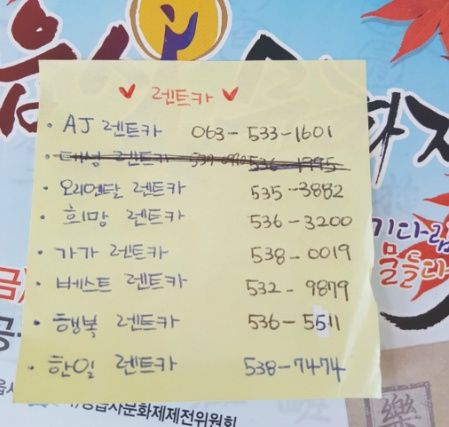 렌트카
· AJ 렌트카 063-533-1601
· 대성 렌트카 536-1995
· 오리엔탈 렌트카 535-3882
· 희망 렌트카 536-3200
· 가가 렌트카 538-0019
· 베스트 렌트카 532-9879
· 행복 렌트카 536-5511
· 한일 렌트카 538-7474
기다림
물들다
읍사문화제제전위원회
樂